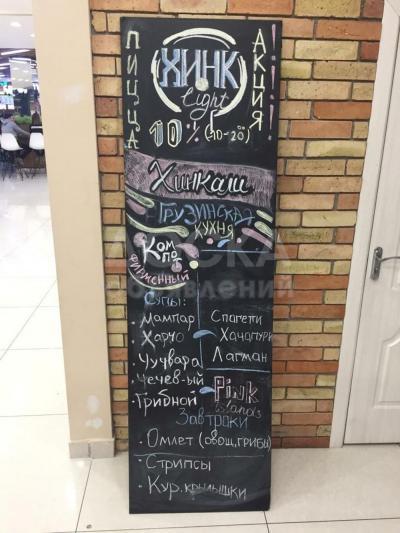 ПИЦЦА
ХИНК
Light
АКЦИЯ!!!
10% (10-20)
Хинкали
ГРУЗИНСКАЯ
КУХНЯ
Ком
по
ФИРМЕННЫЙ
Супы:
. Мампар
. Харчо
. Чучвара
. Чечев-ый
. Грибной
Спагети
Хачапури
Лагман
Pink
islands
Завтраки
. Омлет (овощ,грибы)
. Стрипсы
. Кур.крылышки